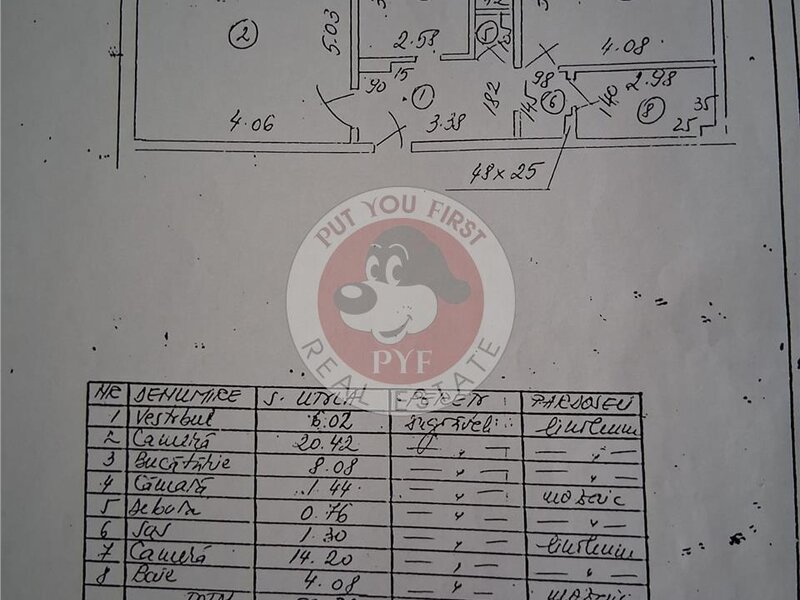 2
5.03
2.53
5
4.08
90
15
1
182
98
145
6
140
2.98
8
35
25
4.06
3.38
48 x 25
PUT YOU FIRST
PYF
REAL ESTATE
NR DENUMIRE S. UTILA PERETI PARDOSELI
1 Vestibul 6.02 zugraveli linoleum
2 Cameră 20.42 — " — — " —
3 Bucătărie 8.08 — " — — " —
4 Cămară 1.44 — " — mozaic
5 Debara 0.76 — " — — " —
6 Sas 1.30 — " — linoleum
7 Cameră 14.20 — " — — " —
8 Baie 4.08 — " — mozaic
TOTAL